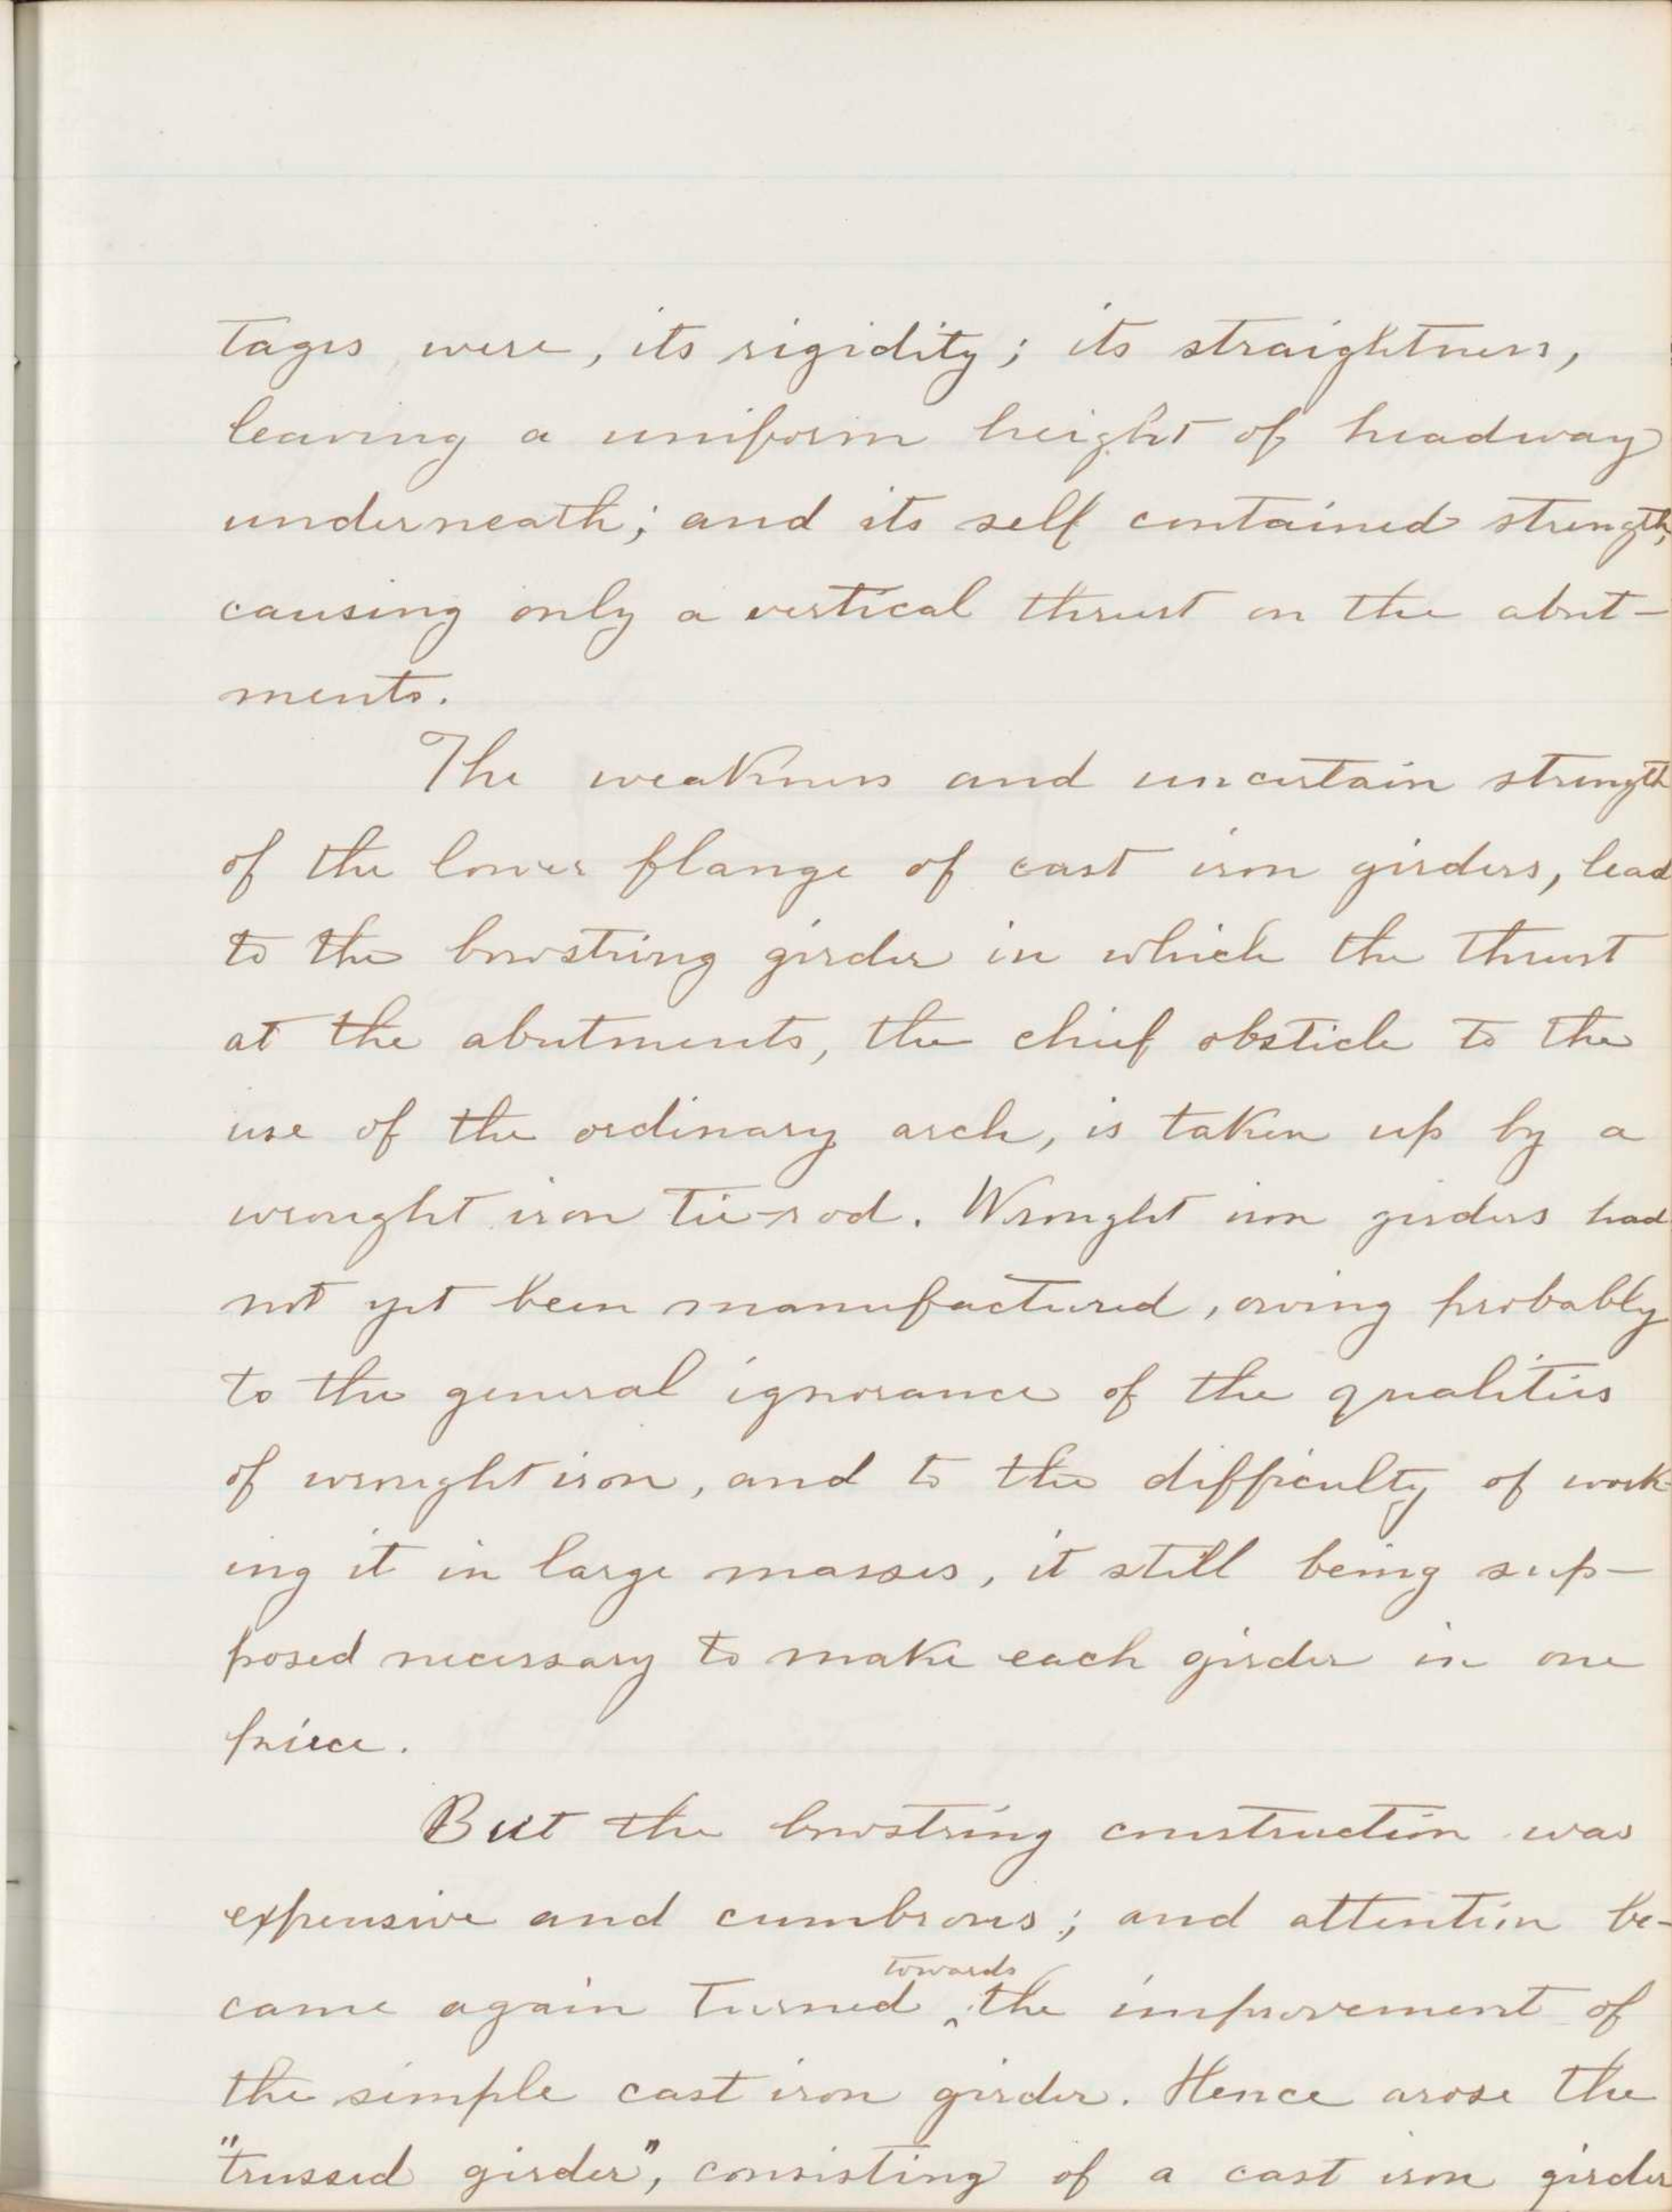 tages were, its rigidity; its straightness,
leaving a uniform height of headway
underneath; and its self contained strength,
causing only a vertical thrust on the abut-
ments.
The weakness and uncertain strength
of the lower flange of cast iron girders, lead
to the bowstring girder in which the thrust
at the abutments, the chief obsticle to the
use of the ordinary arch, is taken up by a
wrought iron tie-rod. Wrought iron girders had
not yet been manufactured, owing probably
to the general ignorance of the qualities
of wrought iron, and to the difficulty of work-
ing it in large masses, it still being sup-
posed necessary to make each girder in one
peice.
But the bowstring construction was
expensive and cumbrous; and attention be-
towards
came again turned ‸ the improvement of
the simple cast iron girder. Hence arose the
"trussed girder", consisting of a cast iron girder